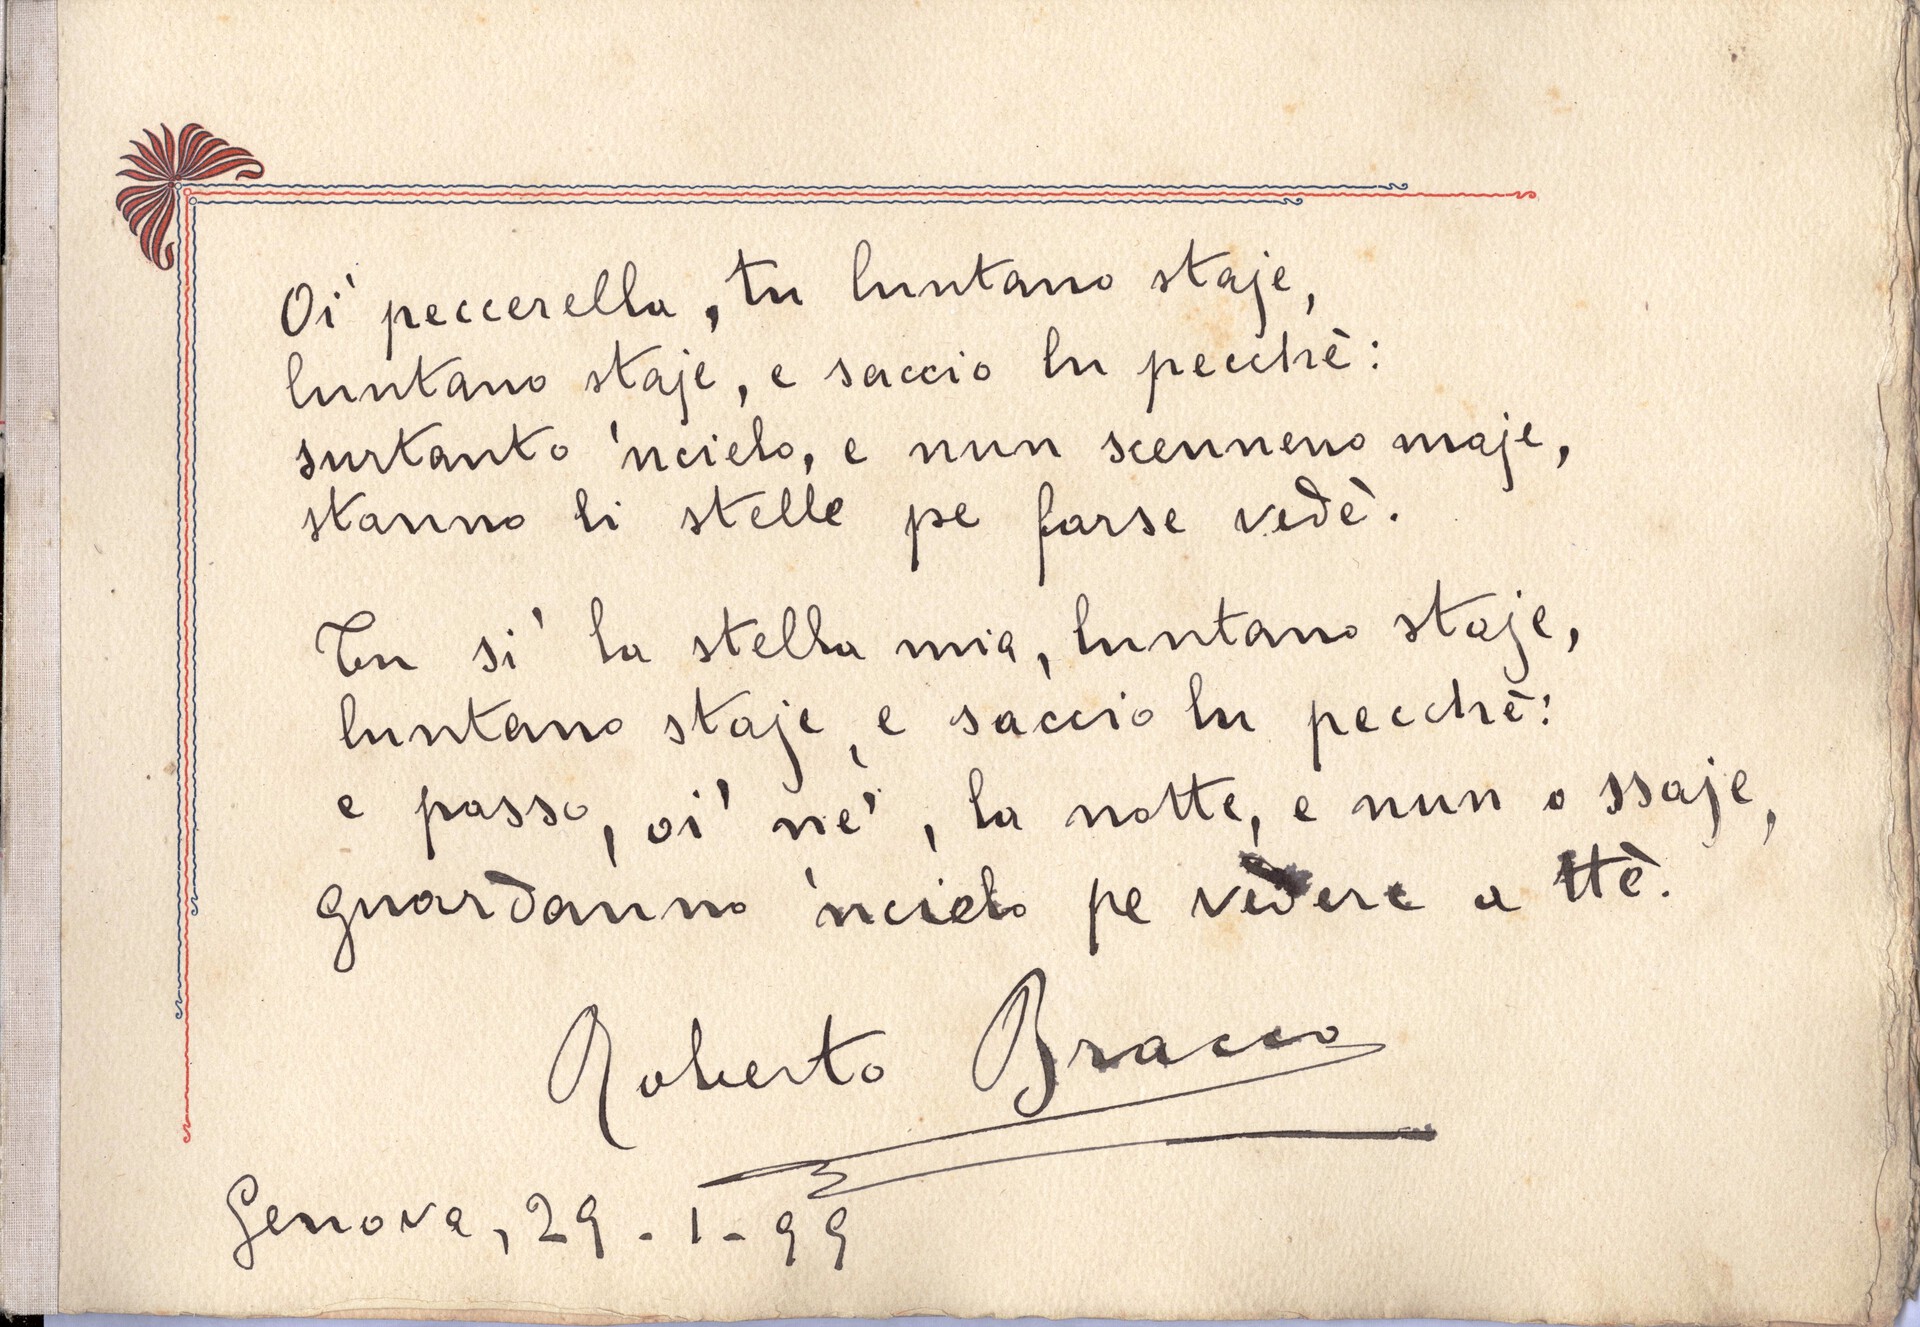 Oi' peccerella, tu luntano staje,
luntano staje, e saccio lu pecchè:
surtanto 'ncielo, e nun scenneno maje,
stanno li stelle pe farse vedè.
Tu si' la stella mia, luntano staje,
luntano staje, e saccio lu pecchè:
e passo, oi' ne', la notte, e nun o ssaje,
guardanno 'ncielo pe vedere a ttè.
Roberto Bracco
Genova, 29-1-99